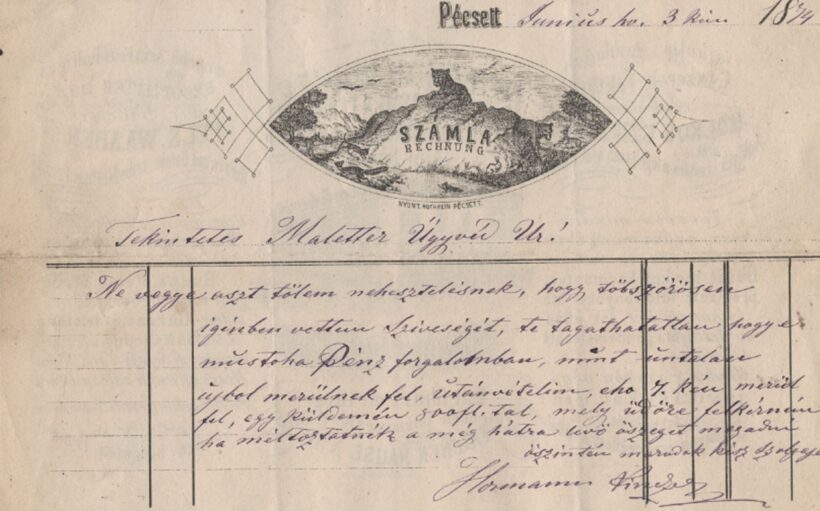 Pécsett Junius hó. 3 kán 1874
SZÁMLA
RECHNUNG
PÉCSETT.
Tekintetes Maletter Ügyvéd Ur!
Ne vegye aszt tölem nehesztelésnek, hogy többszörösen
igénben vettem Sziveségét, te tagathatatlan hogy e
mustoha Pénz forgalomban, mint untalan
újbol merülnek fel, utánvételim, eho 7. kén merül
fel, egy küldemén 800fl. tal, mely üdöre felkérném
ha méltoztatnék a még hátra levö öszeget megadni
öszintén maradok kész szolgája
Hermann